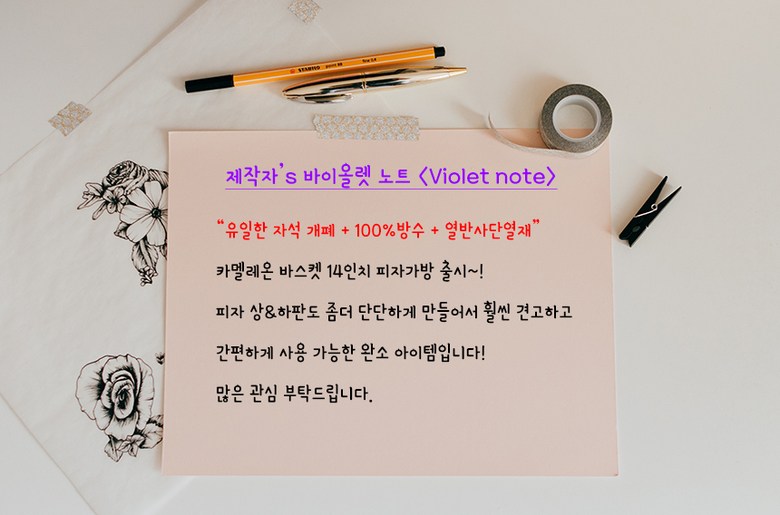 STABILO point 88 fine 0,4
제작자's 바이올렛 노트 <Violet note>
“유일한 자석 개폐 + 100%방수 + 열반사단열재”
카멜레온 바스켓 14인치 피자가방 출시~!
피자 상&하판도 좀더 단단하게 만들어서 훨씬 견고하고
간편하게 사용 가능한 완소 아이템입니다!
많은 관심 부탁드립니다.